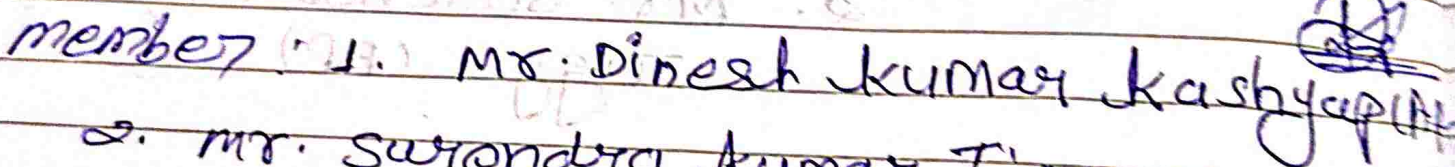 member : 1. Mr. Dinesh kumar kashyap
2. mr. Surendra kumar